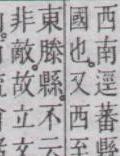 西南逕蕃縣
國也。又西至
東滕縣。不
非敵。故立